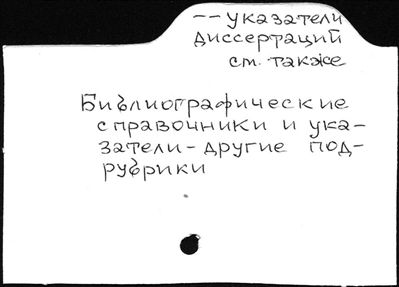 -- указатели
диссертаций
см. также
Библиографические
справочники и ука-
затели - другие под-
рубрики